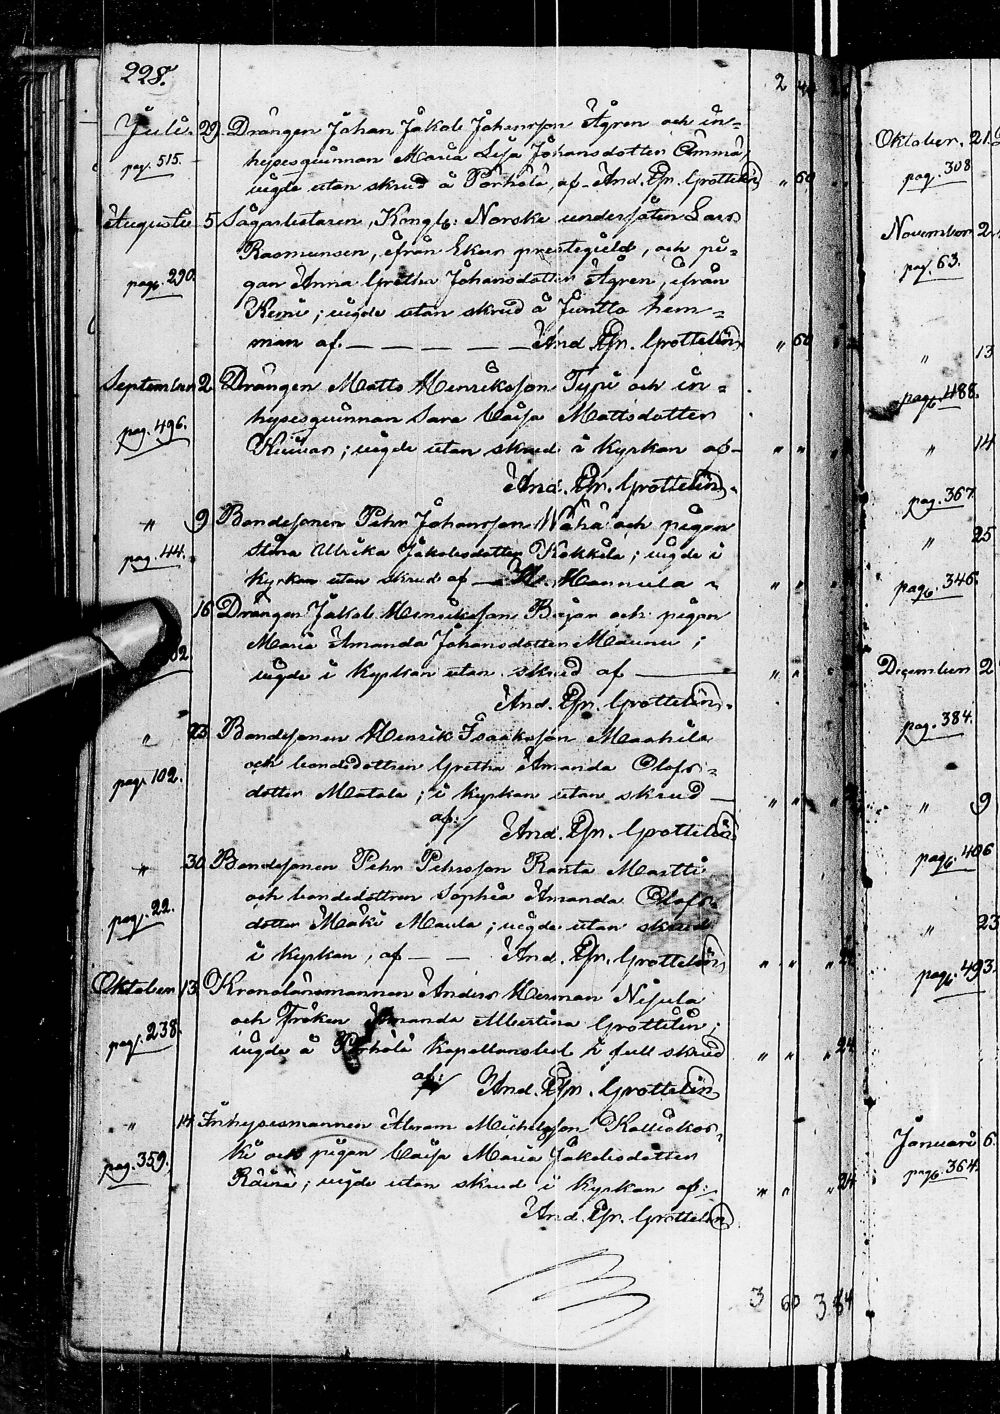 228.
2 40
Juli. 29. Drängen Johan Jakob Johansson Ågren och in=
pag. 515. hysesqvinnan Maria Lisa Johansdotter Ämmä,
vigde utan skrud å Pörhölä, af And. Gr. Grottelin „ 60 „
Augusti 5 Sågarbetaren, Kongl: Norske undersåten Lars
Rasmunsen, ifrån Ekers prestegield, och pi=
pag. 290. gan Anna Gretha Johansdotter Ågren, ifrån
Kemi; vigde utan skrud å Juntto hem=
man af. — — — — And. Gr. Grottelin „ 60
September 2. Drängen Matts Henriksson Typi och in=
hysesqvinnan Sara Caisa Mattsdotter
pag. 496. vigde utan skrud i kyrkan af — „ „ „
And. Gr. Grottelin.
„ 9 Bondesonen Pehr Johansson Wähä och pigan
pag. 44. Ulrika Jakobsdotter Kokkila; vigde i
kyrkan utan skrud af — Mannela „ „ „
16 Drängen Jakob Henriksson och pigan
Maria Amanda Johansdotter Maunu;
02. vigde i kyrkan utan skrud af — „ „ „
And. Gr. Grottelin.
„ 23 Bondesonen Henrik Isaaksson Marhila
och bondedottren Gretha Amanda Olofs=
pag. 102. dotter Matala; i kyrkan utan skrud — „ „ „
af:/ And. Gr. Grottelin
„ 30 Bondesonen Pehr Pehrsson Ranta Martti
och bondedottren Sophia Amanda Olofs=
pag. 22. dotter Mäki Maula; vigde utan skrud
i kyrkan, af — — And. Gr. Grottelin „ „
Oktober 13. Kronolänsmannen Anders Herman Nisula
och Fröken Amanda Albertina Grottelin;
pag. 238. vigde å Pörhölä Kapellansbol i full skrud „ „ „ 24
af:/ And. Gr. Grottelin
„ 14. Inhysesmannen Abram Michelsson Kalliokos=
ki och pigan Caisa Maria Jakobsdotter
pag. 359. Räinä; vigde utan skrud i kyrkan af: „ „ „ 24
And. Gr. Grottelin
3 60 3 84
Oktober. 21.
pag. 308
November 2
pag. 63.
„ 13
pag. 488.
„ 14
pag. 367
„ 25
pag. 346.
December 2
pag. 384.
„ 9
pag. 406
„ 23
pag. 493.
Januari 6.
pag. 364.